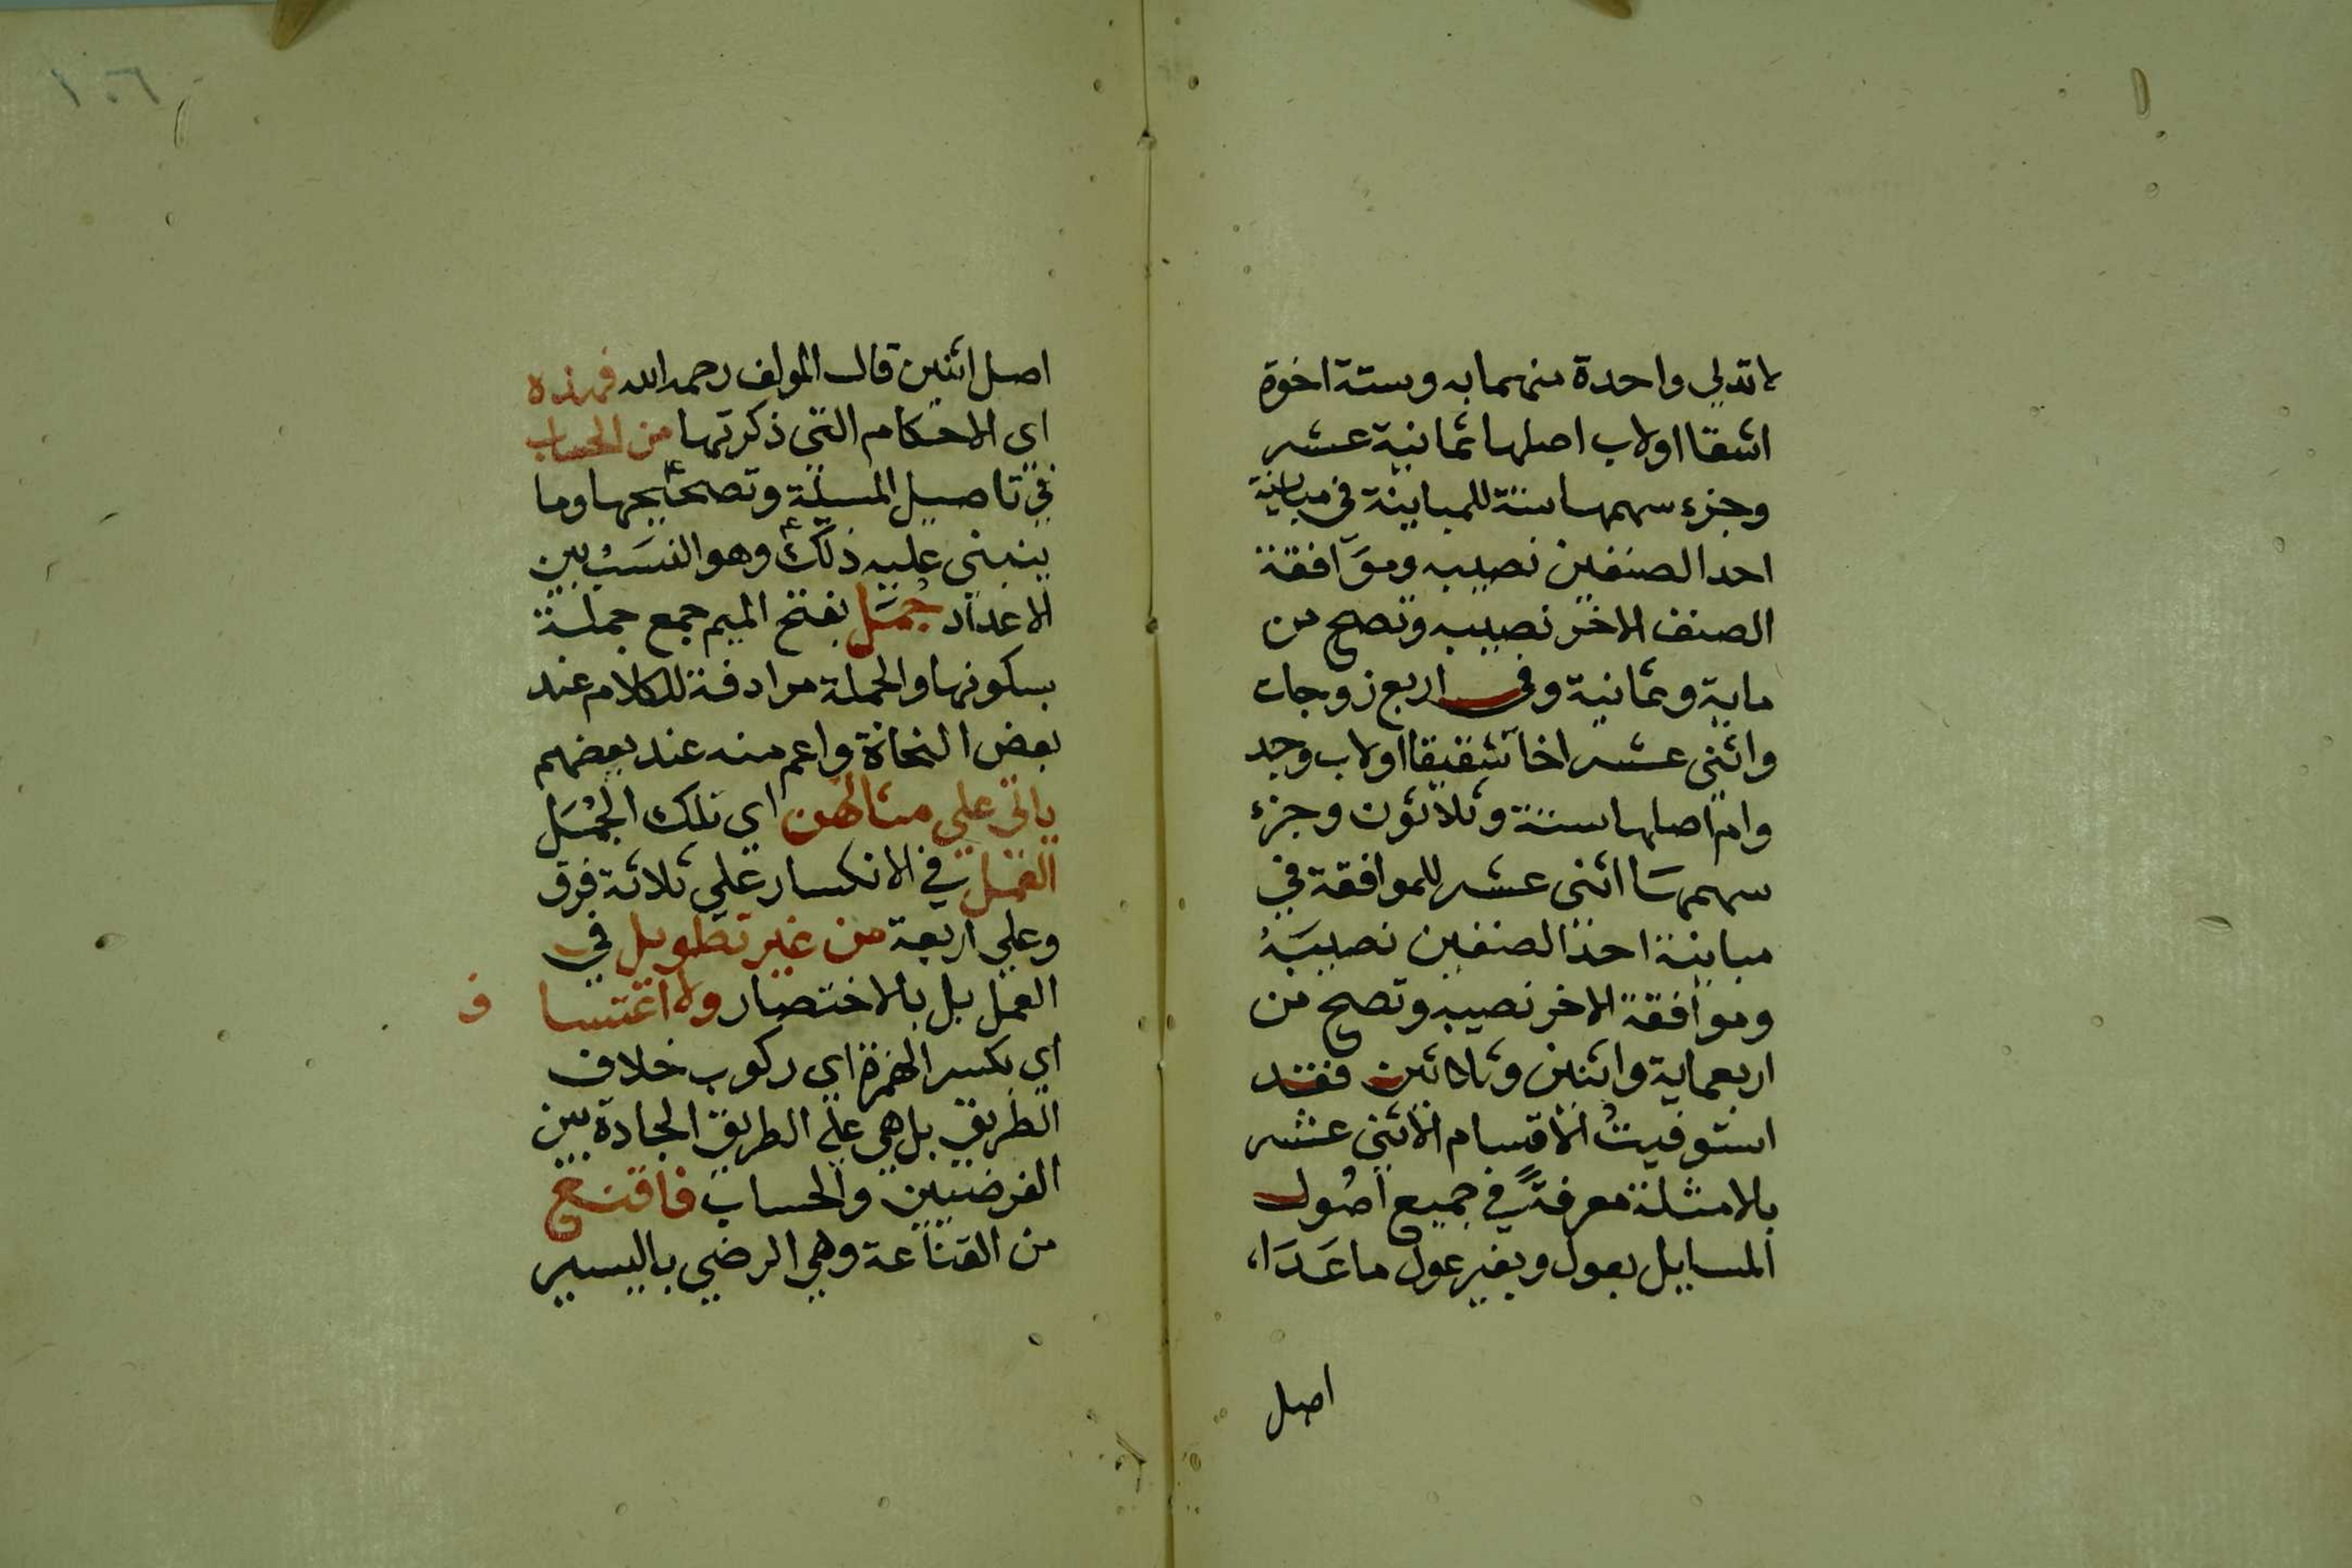 لا تدلي واحدة منهما به وستة اخوة
اشقا او لاب اصلها ثمانية عشر
وجزء سهمها ستة للمباينة في مباينة
احد الصنفين نصيبه وموافقة
الصنف الاخر نصيبه وتصح من
ماية وثمانية وفي اربع زوجات
واثنى عشر اخا شقيقا او لاب وجد
وام اصلها ستة وثلاثون وجزء
سهمها اثنى عشر للموافقة في
مباينة احد الصنفين نصيبَهُ
وموافقة الاخر نصيبه وتصح من
اربعماية واثنين وثلاثين فقد
استوفيتُ الاقسام الاثنى عشر
بالامثلة معرفةً في جميع اصُول
المسايل بعول وبغير عول ماعَدَا
اصل
١٠٦
اصل اثنين قال المولف رحمه الله فهذه
اي الاحكام التي ذكرتها من الحساب
في تاصيل المسيلة وتصحيحها وما
ينبني عليه ذلك وهو النسَبُ بين
الاعداد جُمَل بفتح الميم جمع جملة
بسكونها والجملة مرادفة للكلام عند
بعض النحاة واعم منه عند بعضهم
ياتي علي مثالهن اي تلك الجُمَل
العمل في الانكسار علي ثلاثة فرق
وعلي اربعة من غير تطويل في
العمل بل بالاختصار ولا اعتسا ف
اي بكسر الهمزة اي ركوب خلاف
الطريق بل هي علي الطريق الجادة بين
الفرضيين والحساب فاقنع
من القناعة وهي الرضي باليسير